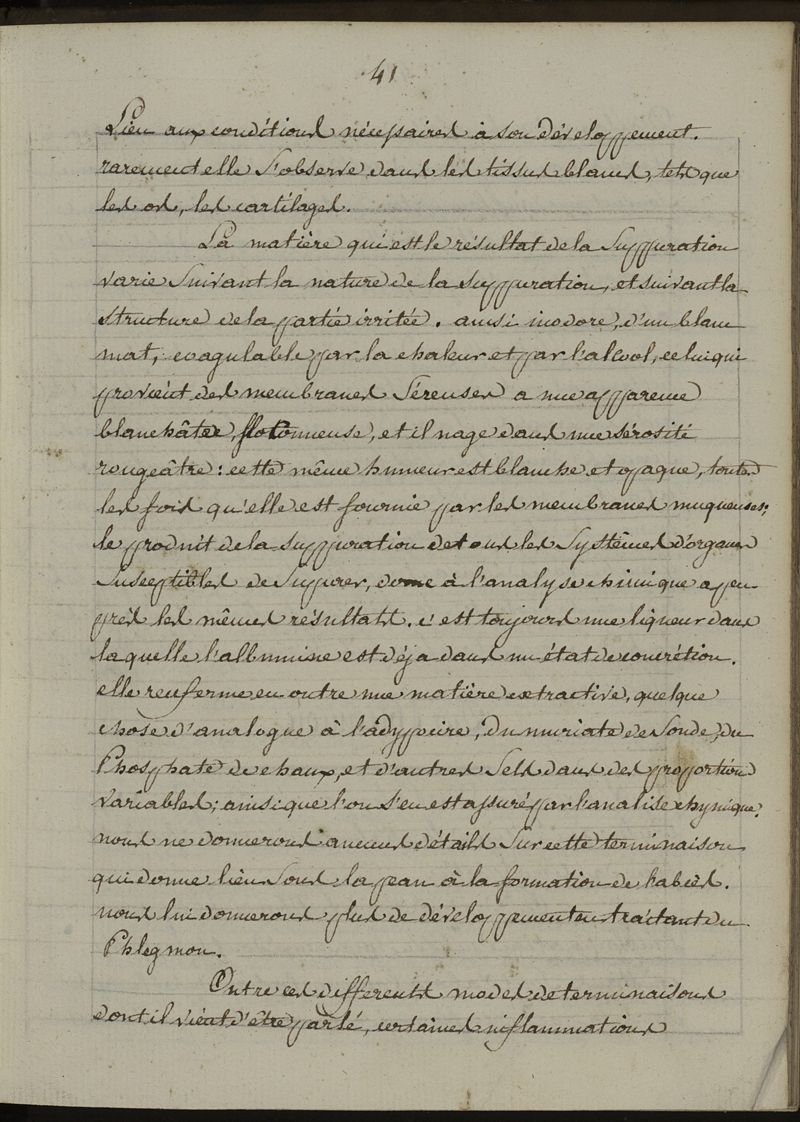 41
Lieu aux conditions nécessaires à son développement.
rarement elle s'observe dans les tissus blancs, tels que
les os, les cartilages.
La matière qui est le résultat de la Suppuration
varie Suivant la nature de la suppuration, et suivant la
structure de la partie irritée. ainsi inodore, d'un blanc
mat, coagulable par la chaleur et par l'alcool, celui qui
provient des membranes Séreuses a une apparence
blanchâtre, floconneuse, et il nage dans une sérosité
rougeâtre : cette même humeur est blanche et opaque, toutes
les fois qu'elle est fournie par les membranes muqueuses;
le produit de la suppuration de tous les Systêmes d'organes
susceptibles de Supurer, donne à l'analyse chimique a peu
près les mêmes résultats. c'est toujours une liqueur dans
laquelle l'albumine est déja dans un état de concrétion.
elle renferme en outre une matière extractive, quelque
chose d'analogue à l'adypocire, du muriate de Soude, du
Phosphate de chaux, et d'autres Sels dans des proportions
variables; ainsi que l'on s'en est assuré par l'analise chymique.
nous ne donnerons aucuns détails Sur cette terminaison
qui donne lieu Sous la peau à la formation de l'abcès.
nous lui donnerons plus de développement en traitant du
Phlegmon.
Outre ces differents modes de terminaisons
dont il vient d'être parlé, certaines inflammations